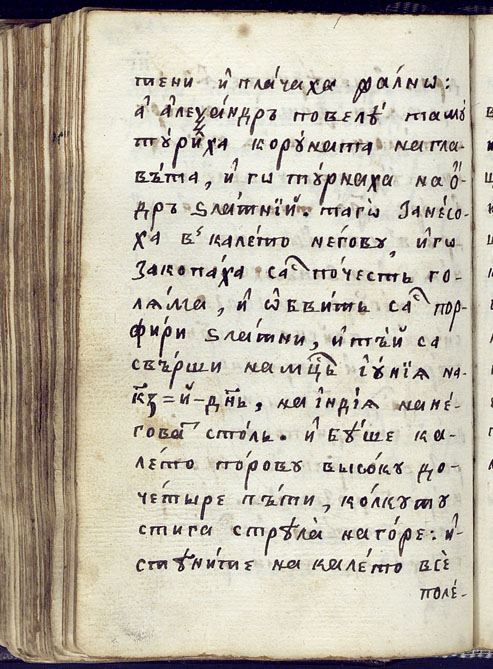 тени и҆ плачаха фалнѡ:
а҆ але҆ѯандръ повелѣ̀ тамѹ
тꙋриха корꙋната на гла-
вѣта, и҆ го тꙋрнаха на ѻ-
дръ ѕлатнїй. таго̀ занесо-
ха вꙿ калето негову, и҆ гѡ
закопаха саⷭ почесть го-
лѧма, и҆ ѡ҆бвитъ саⷭ пор-
фири ѕлатни, и҆ тъй са
свърши на мцⷭъ і҆ꙋнїѧ на-
к҃ꙁ=й-д҃нь, на і҆ндїѧ на не-
говаⷮ столь. и҆ бѣше ка-
лето порову высоку до-
четыре пѣти, колкуту
стига стрѣла на горе: и҆-
стѣните на калето всѐ
поле-